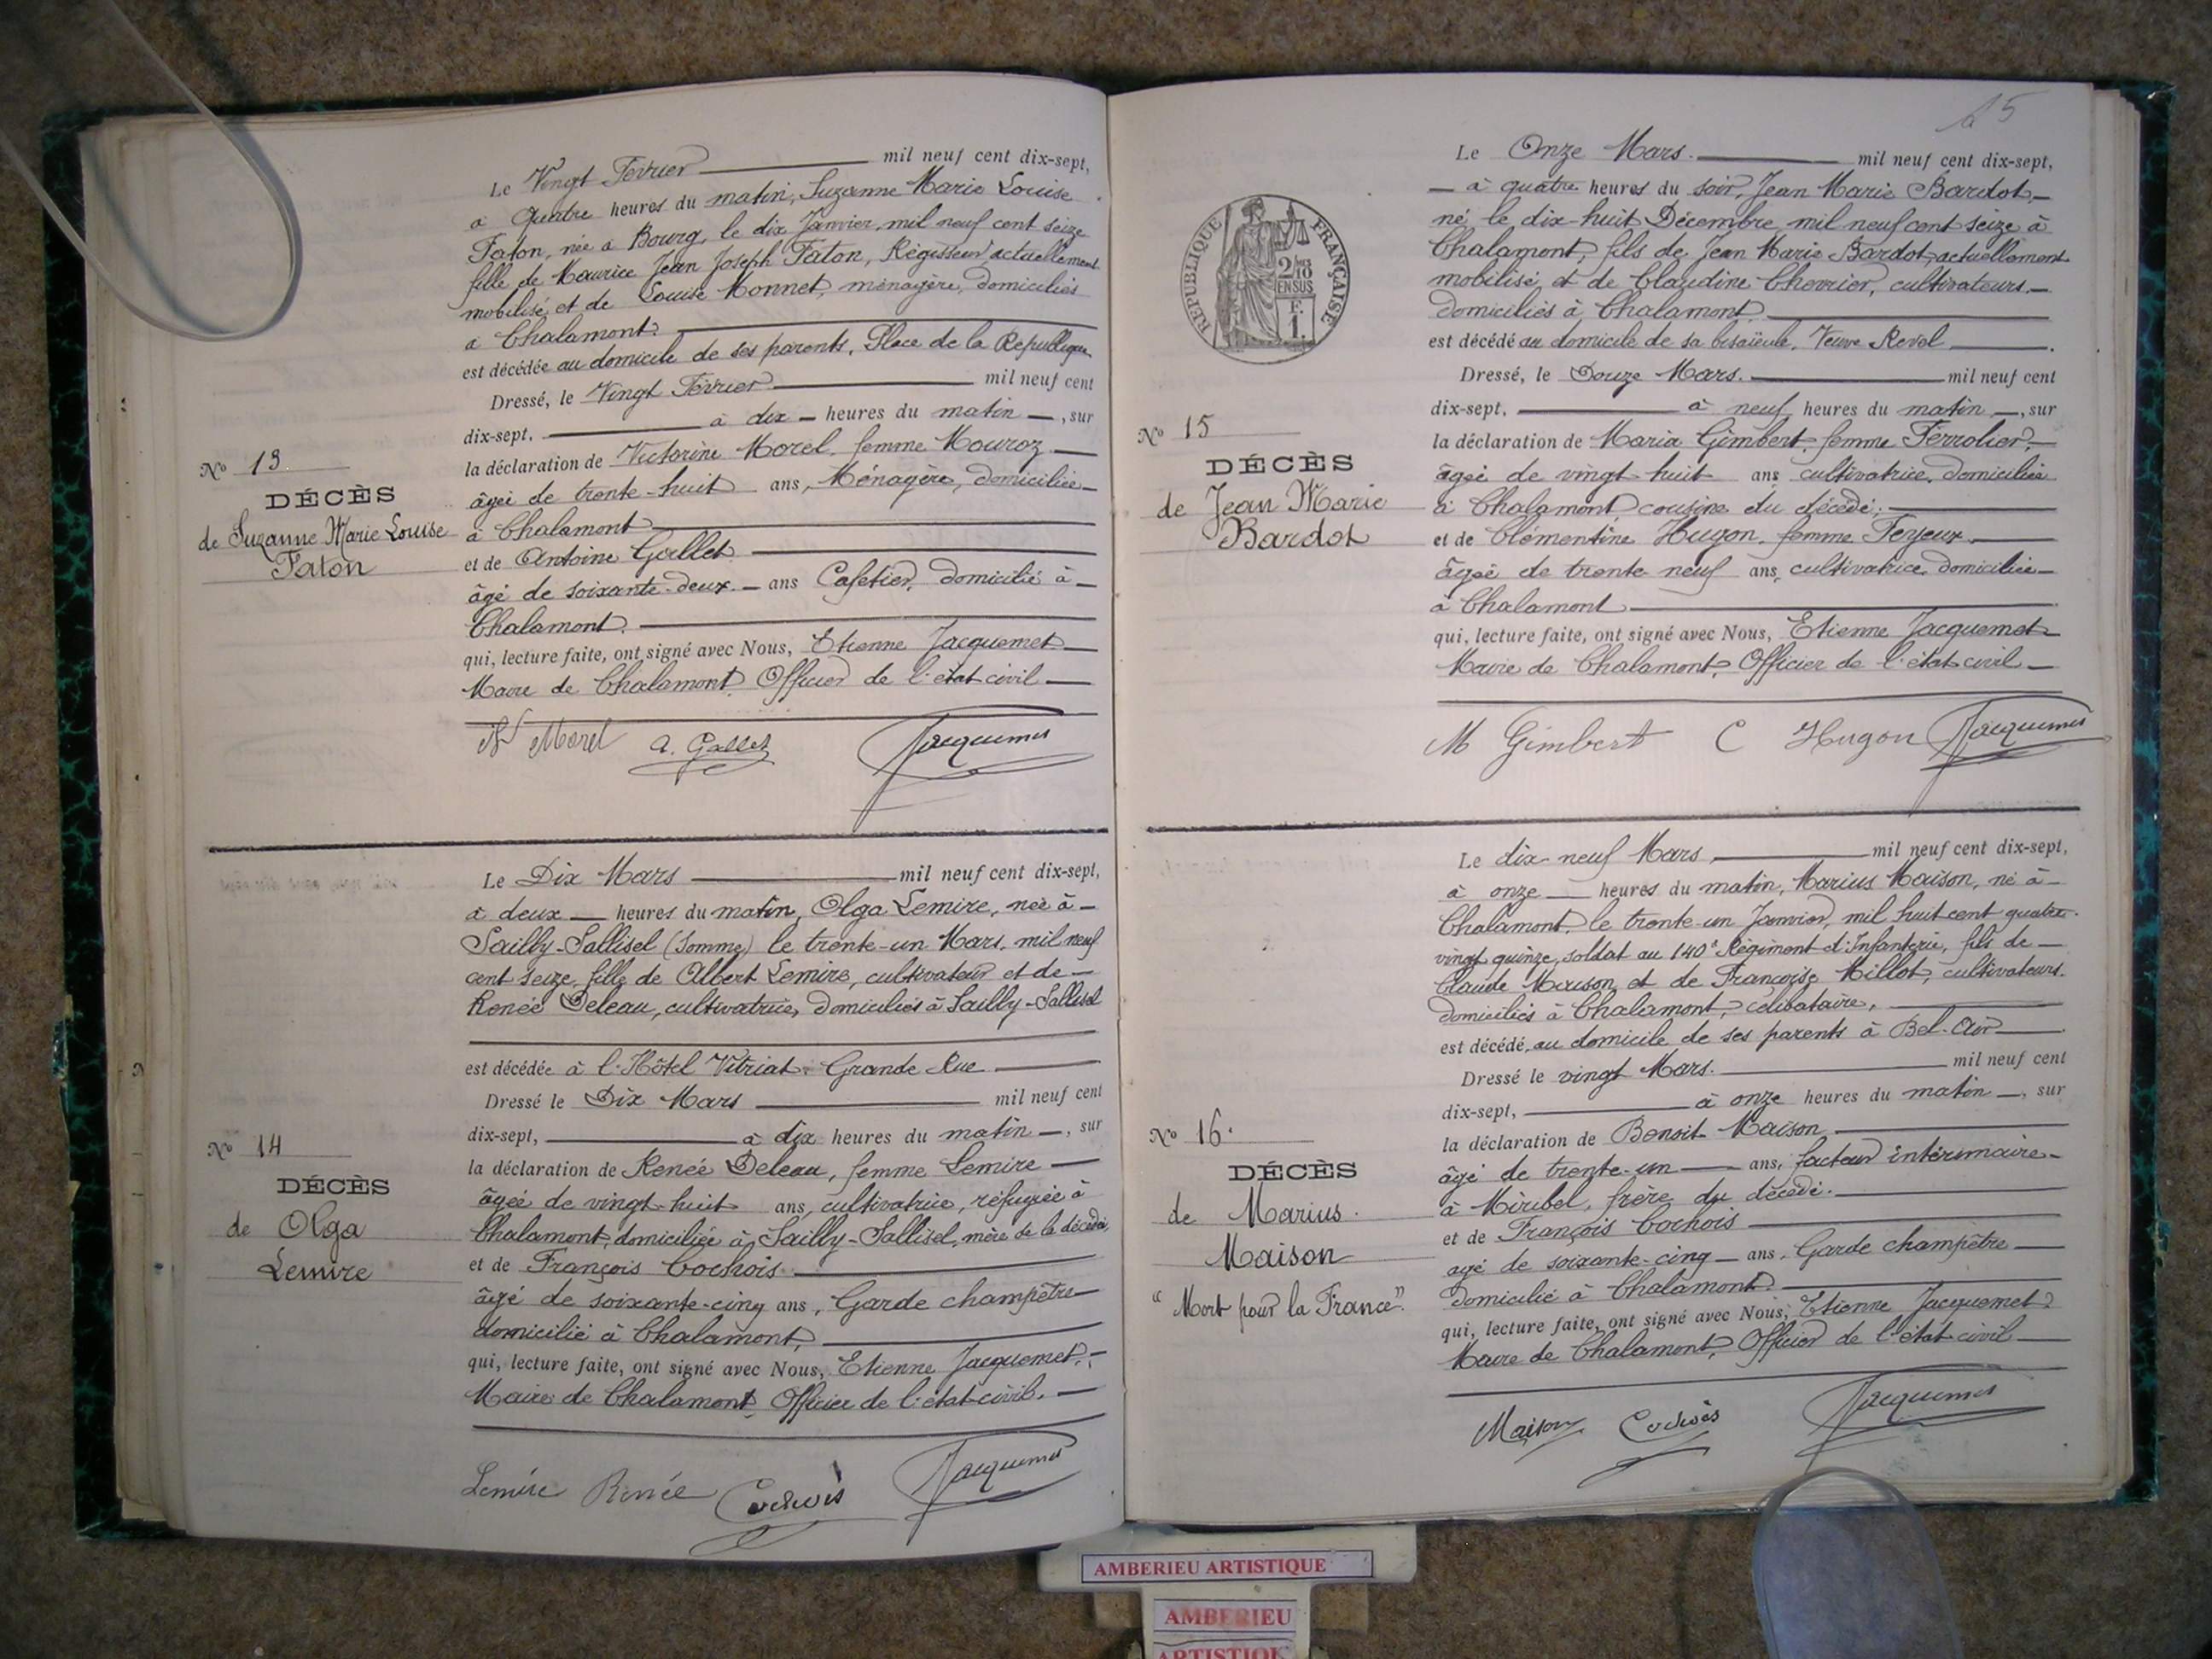 Le Vingt Février mil neuf cent dix-sept,
à quatre heures du matin, Suzanne Marie Louise
Faton, née à Bourg, le dix Janvier mil neuf cent seize
fille de Maurice Jean Joseph Faton, Régisseur actuellement
mobilisé et de Louise Monnet, ménagère, domiciliés
à Chalamont.
est décédée au domicile de ses parents, Place de la République
Dressé, le Vingt Février mil neuf cent
dix-sept, à dix heures du matin, sur
la déclaration de Victorine Morel, femme Mouroz
âgée de trente-huit ans, Ménagère, domiciliée
à Chalamont
et de Antoine Gallet
âgé de soixante-deux ans Cafetier, domicilié à
Chalamont.
qui, lecture faite, ont signé avec Nous, Etienne Jacquemet
Maire de Chalamont, Officier de l'état civil
Morel A. Gallet Jacquemet
No 13
DÉCÈS
de Suzanne Marie Louise
Faton
Le Dix Mars mil neuf cent dix-sept,
à deux heures du matin, Olga Lemire, née à
Sailly-Sallisel (Somme) le trente-un Mars, mil neuf
cent seize, fille de Albert Lemire, cultivateur et de
Renée Deleau, cultivatrice, domiciliés à Sailly-Sallisel
est décédée à l'Hôtel Vitriat, Grande Rue
Dressé le Dix Mars mil neuf cent
dix-sept, à dix heures du matin, sur
la déclaration de Renée Deleau, femme Lemire
âgée de vingt-huit ans, cultivatrice, réfugiée à
Chalamont, domiciliée à Sailly-Sallisel, mère de la décédée,
et de François Cochois
âgé de soixante-cinq ans, Garde champêtre
domicilié à Chalamont,
qui, lecture faite, ont signé avec Nous, Etienne Jacquemet,
Maire de Chalamont, Officier de l'état-civil.
Lemire Renée Cochois Jacquemet
No 14
DÉCÈS
de Olga
Lemire
15
Le Onze Mars. mil neuf cent dix-sept,
à quatre heures du soir, Jean Marie Bardot
né le dix-huit Décembre mil neuf cent seize à
Chalamont, fils de Jean Marie Bardot, actuellement
mobilisé et de Claudine Chevrier, cultivateurs
domiciliés à Chalamont
est décédé au domicile de sa bisaïeule, Veuve Revol.
Dressé, le Douze Mars. mil neuf cent
dix-sept, à neuf heures du matin, sur
la déclaration de Maria Gimbert, femme Ferrolier,
âgée de vingt huit ans cultivatrice, domiciliée
à Chalamont, cousine du décédé;
et de Clémentine Hugon, femme Feyeux
âgée de trente neuf ans, cultivatrice, domiciliée
à Chalamont
qui, lecture faite, ont signé avec Nous, Etienne Jacquemet
Maire de Chalamont, Officier de l'état civil
M Gimbert C Hugon Jacquemet
RÉPUBLIQUE FRANÇAISE
2/10
EN SUS
F.
1.
No 15
DÉCÈS
de Jean Marie
Bardot
Le dix-neuf Mars, mil neuf cent dix-sept,
à onze heures du matin, Marius Maison, né à
Chalamont, le trente-un Janvier, mil huit cent quatre
vingt quinze, soldat au 140e Régiment d'Infanterie, fils de
Claude Maison et de Françoise Millot, cultivateurs
domiciliés à Chalamont, célibataire,
est décédé au domicile de ses parents à Bel-Air.
Dressé le vingt Mars. mil neuf cent
dix-sept, à onze heures du matin, sur
la déclaration de Benoit Maison
âgé de trente-un ans, facteur intérimaire
à Miribel, frère du décédé.
et de François Cochois
agé de soixante-cinq ans, Garde champêtre
domicilié à Chalamont.
qui, lecture faite, ont signé avec Nous, Etienne Jacquemet
Maire de Chalamont, Officier de l'état civil
Maison Cochois Jacquemet
No 16.
DÉCÈS
de Marius
Maison
"Mort pour la France".
AMBERIEU ARTISTIQUE
AMBERIEU
ARTISTIQUE